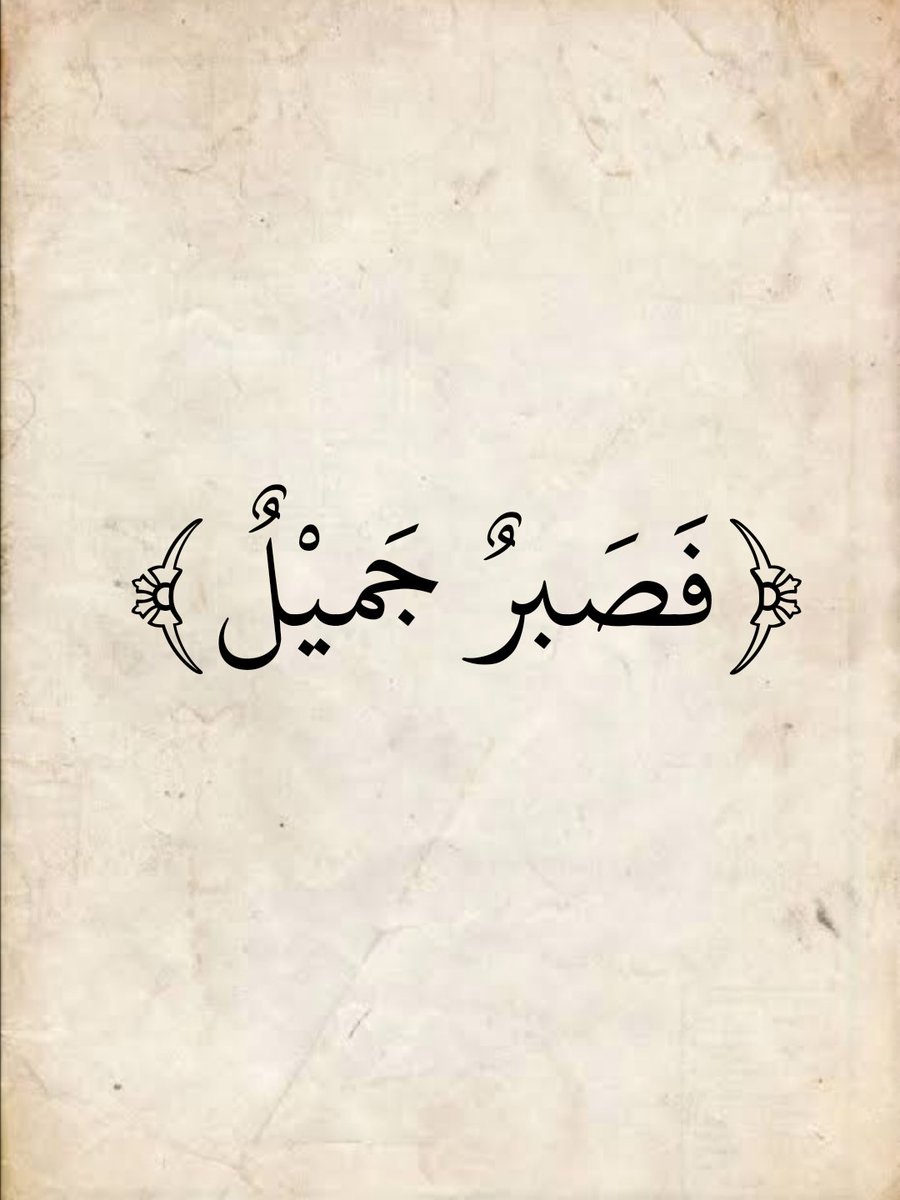 ﴿فَصَبرٌ جَميْلٌ﴾